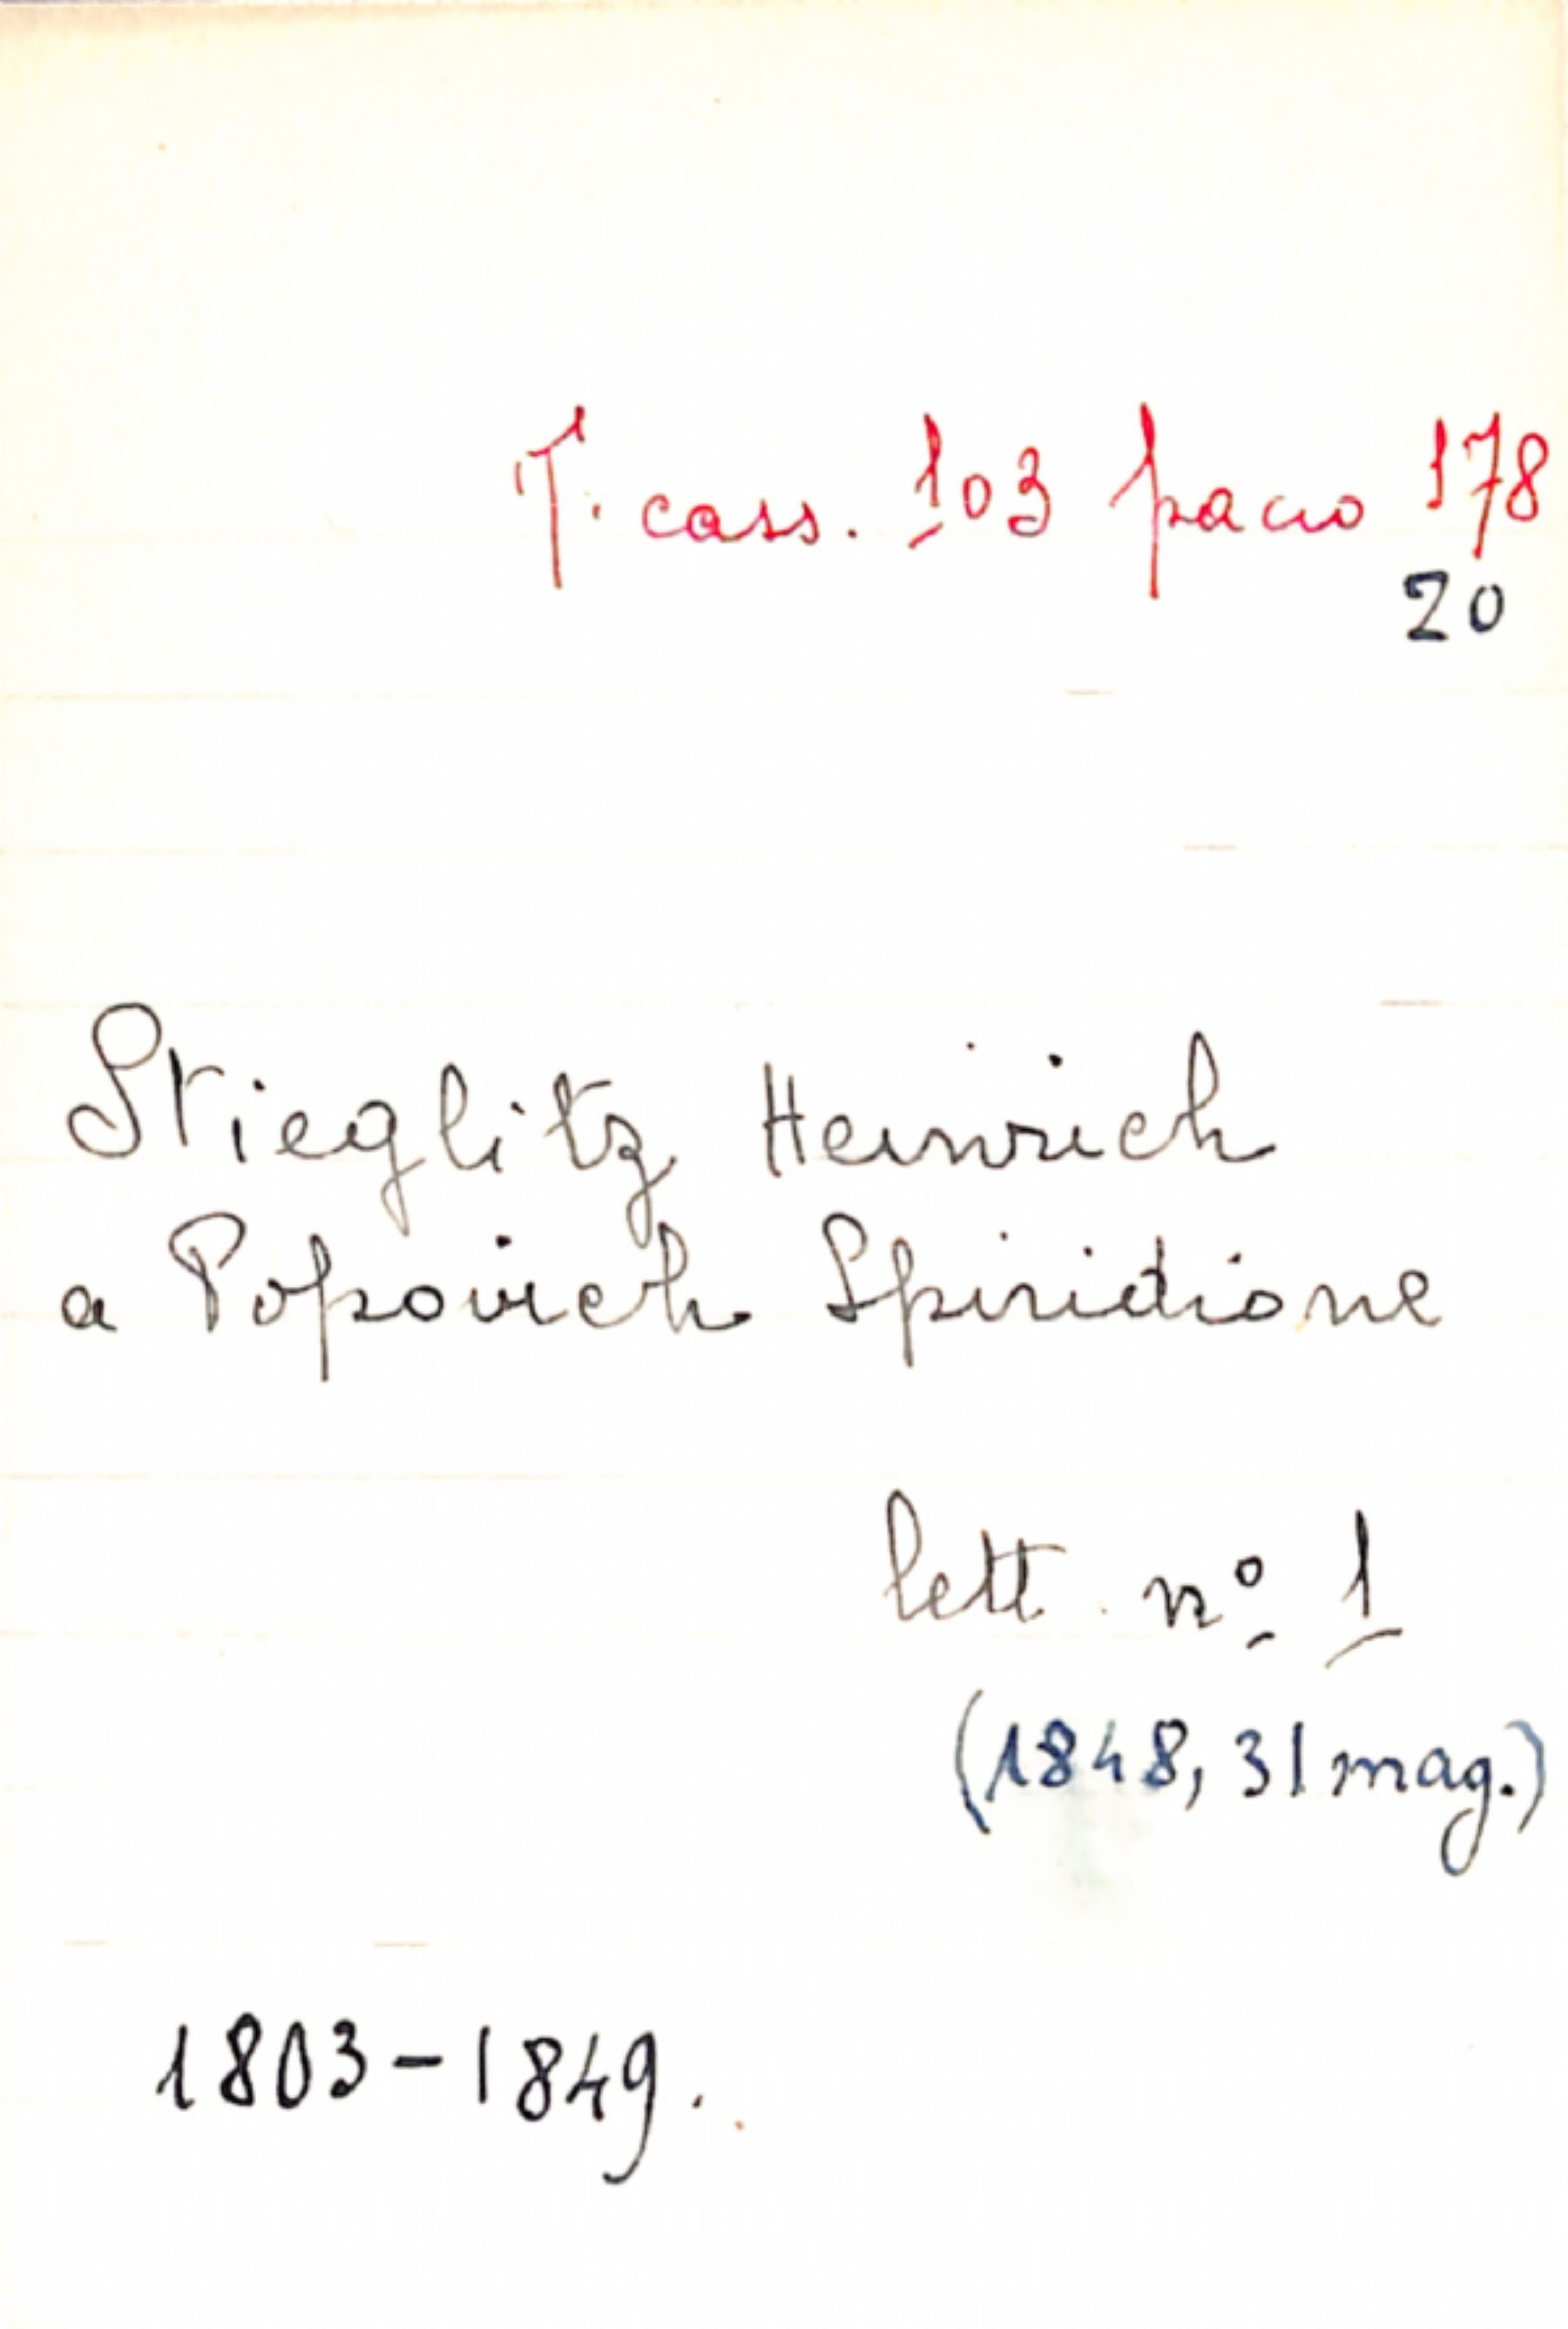 T. cass. 103 pacco 178
20
Stieglitz Heinrich
a Popovich Spiridione
lett. nº 1
(1848, 31 mag.)
1803-1849.